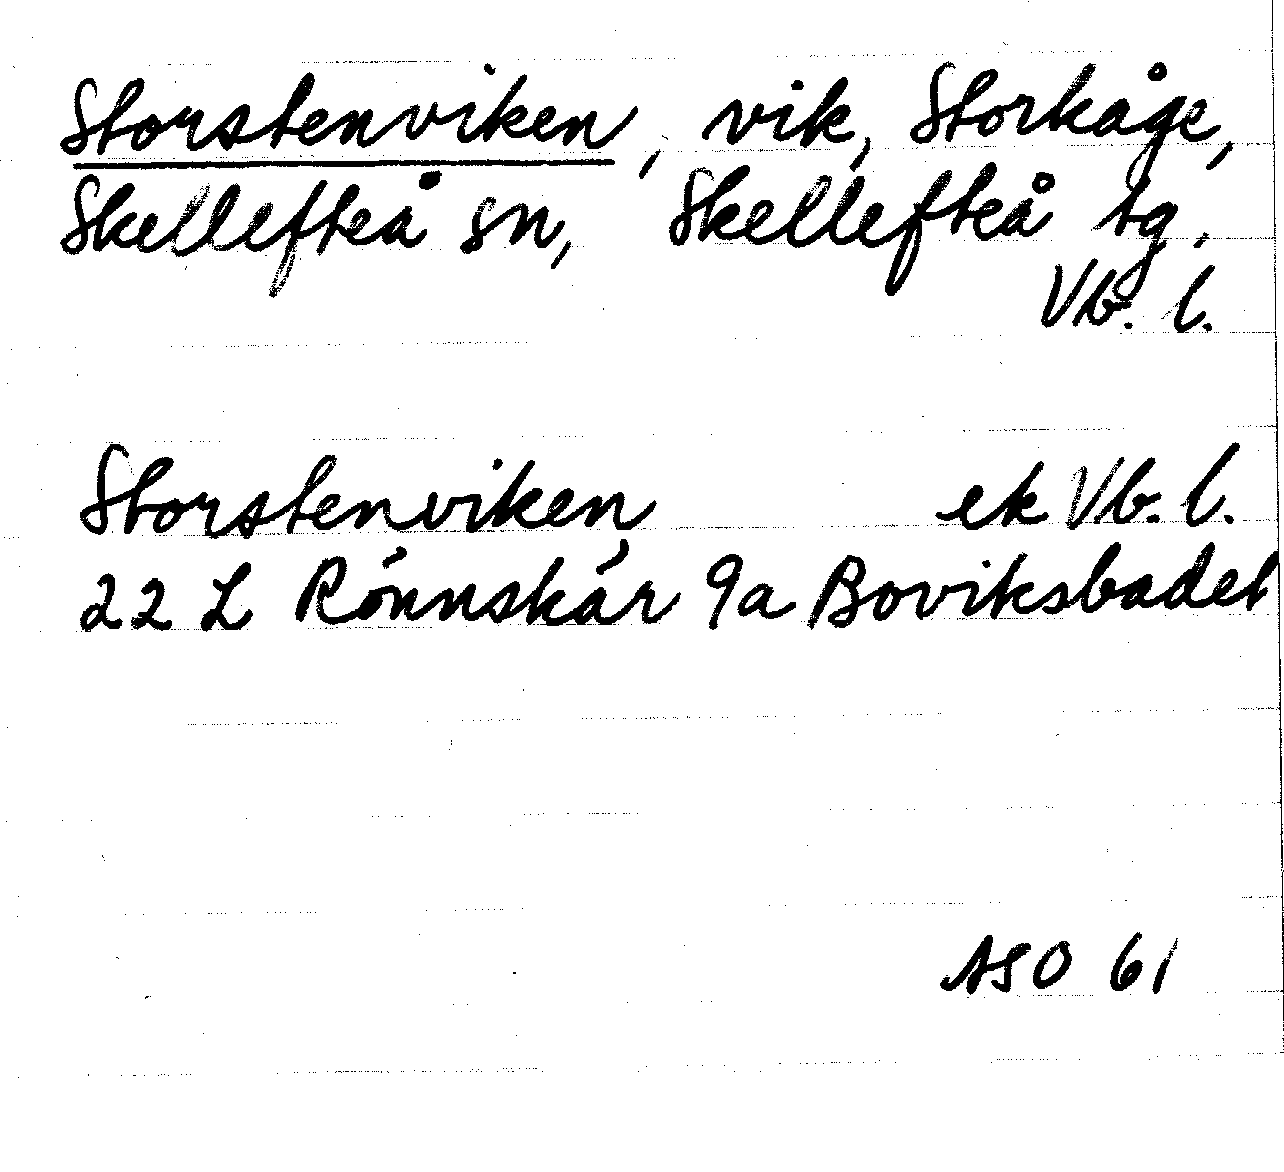 Storstenviken, vik, Storkåge,
Skellefteå sn, Skellefteå tg,
Vb. l.
Storstenviken ek Vb. l.
22 L Rönnskär 9a Boviksbadet
ASO 61